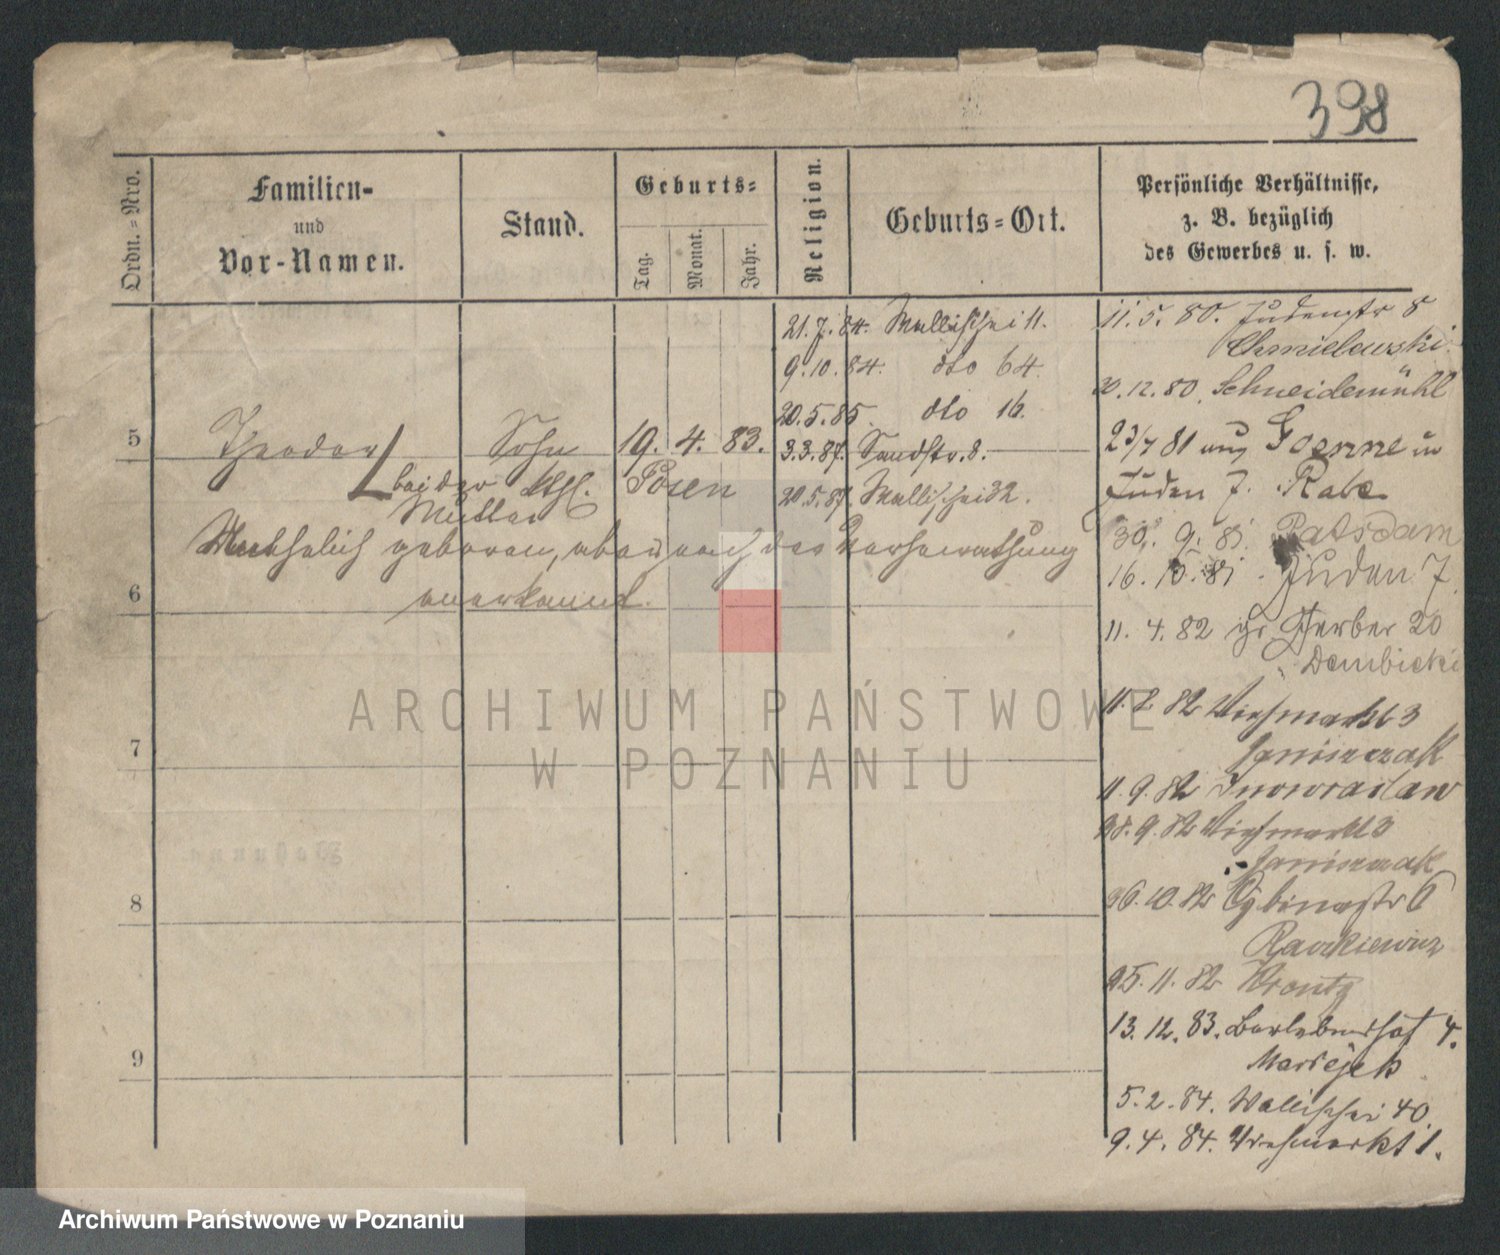 398
Ordn.=Nro.
Familien-
und
Vor-Namen.
Stand.
Geburts=
Tag.
Monat.
Jahr.
Religion.
Geburts=Ort.
Persönliche Verhältnisse,
z. B. bezüglich
des Gewerbes u. s. w.
21.7.84. Wallischei 11.
9.10.84. dto 64.
20.5.85. dto 16.
5 Theodor Sohn 19. 4. 83. 3.3.87. Sandstr. 8.
bei der Mutter
Posen 20.5.87. Wallischei 32.
geboren, aber nach der Verheirathung
anerkannt.
6
7
8
9
11.5.80. Judenstr 8
Chmielewski.
30.12.80. Schneidemühl
23/7 81 aus in
Juden 7. Rabe
30. 9. 81. Potsdam
16. 10. 81. Juden 7.
11. 4. 82 gr. Gerber 20
Dembicki
82 Viehmarkt 3
Janiszczak
11.9.82 Inowraclaw
28.9.82 Viehmarkt 3
Janiszczak
26.10.82 Cybinastr 6
25.11.82
13.12.83. Berlebenshof 4.
5.2.84. Wallischei 40.
9.4.84. Viehmarkt 1.
ARCHIWUM PAŃSTWOWE
W POZNANIU
Archiwum Państwowe w Poznaniu